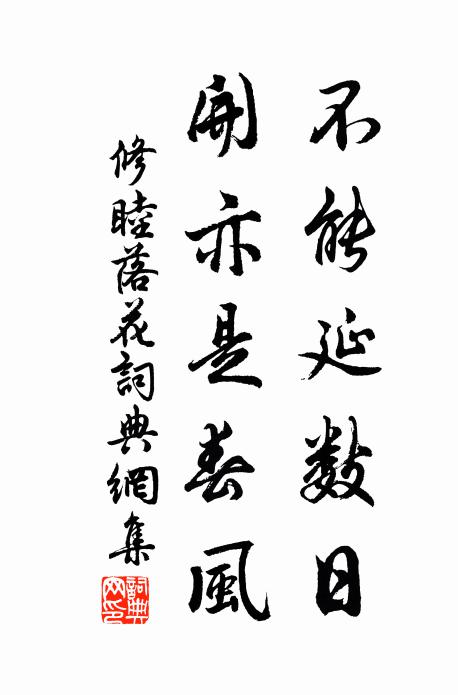 不能延數日
開亦是春風
修睦落花詞典網集
詞典網印